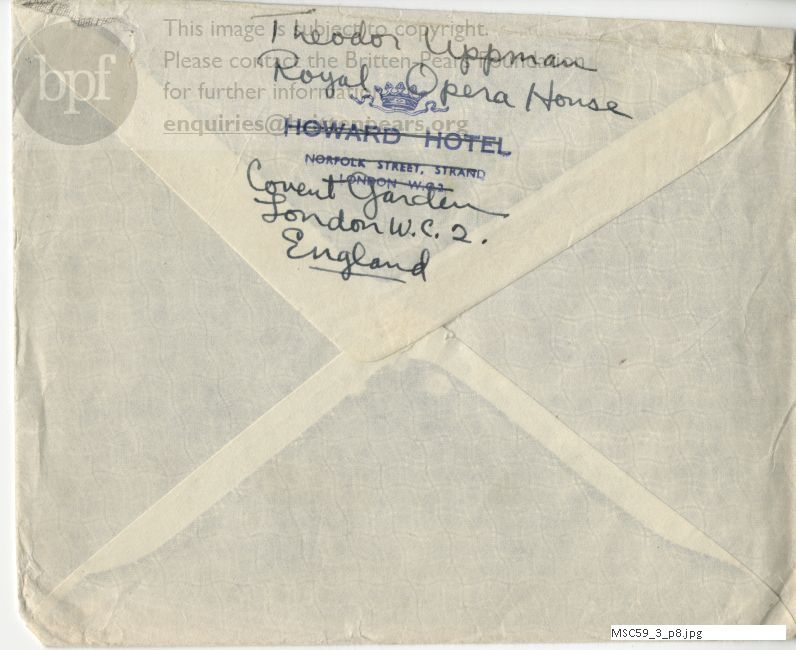 This image is subject to copyright.
Please contact the Britten Pears Foundation
for further information
enquiries@brittenpears.org
bpf
Theodor Uppman
Royal Opera House
HOWARD HOTEL
NORFOLK STREET, STRAND
LONDON W.C.2
Covent Garden
London W.C. 2.
England
MSC59_3_p8.jpg